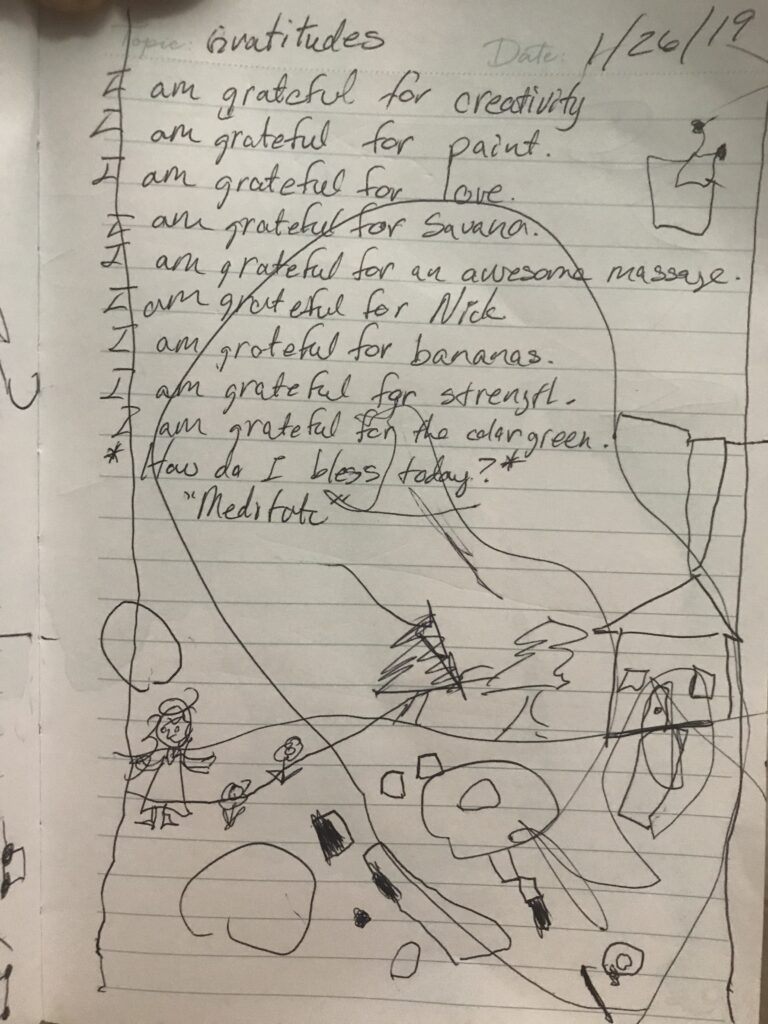 Topic: Gratitudes Date: 1/26/19
I am grateful for creativity
I am grateful for paint.
I am grateful for love.
I am grateful for Savana.
I am grateful for an awesome massage.
I am grateful for Nick
I am grateful for bananas.
I am grateful for strength.
I am grateful for the color green.
* How do I bless today? *
"Meditate"